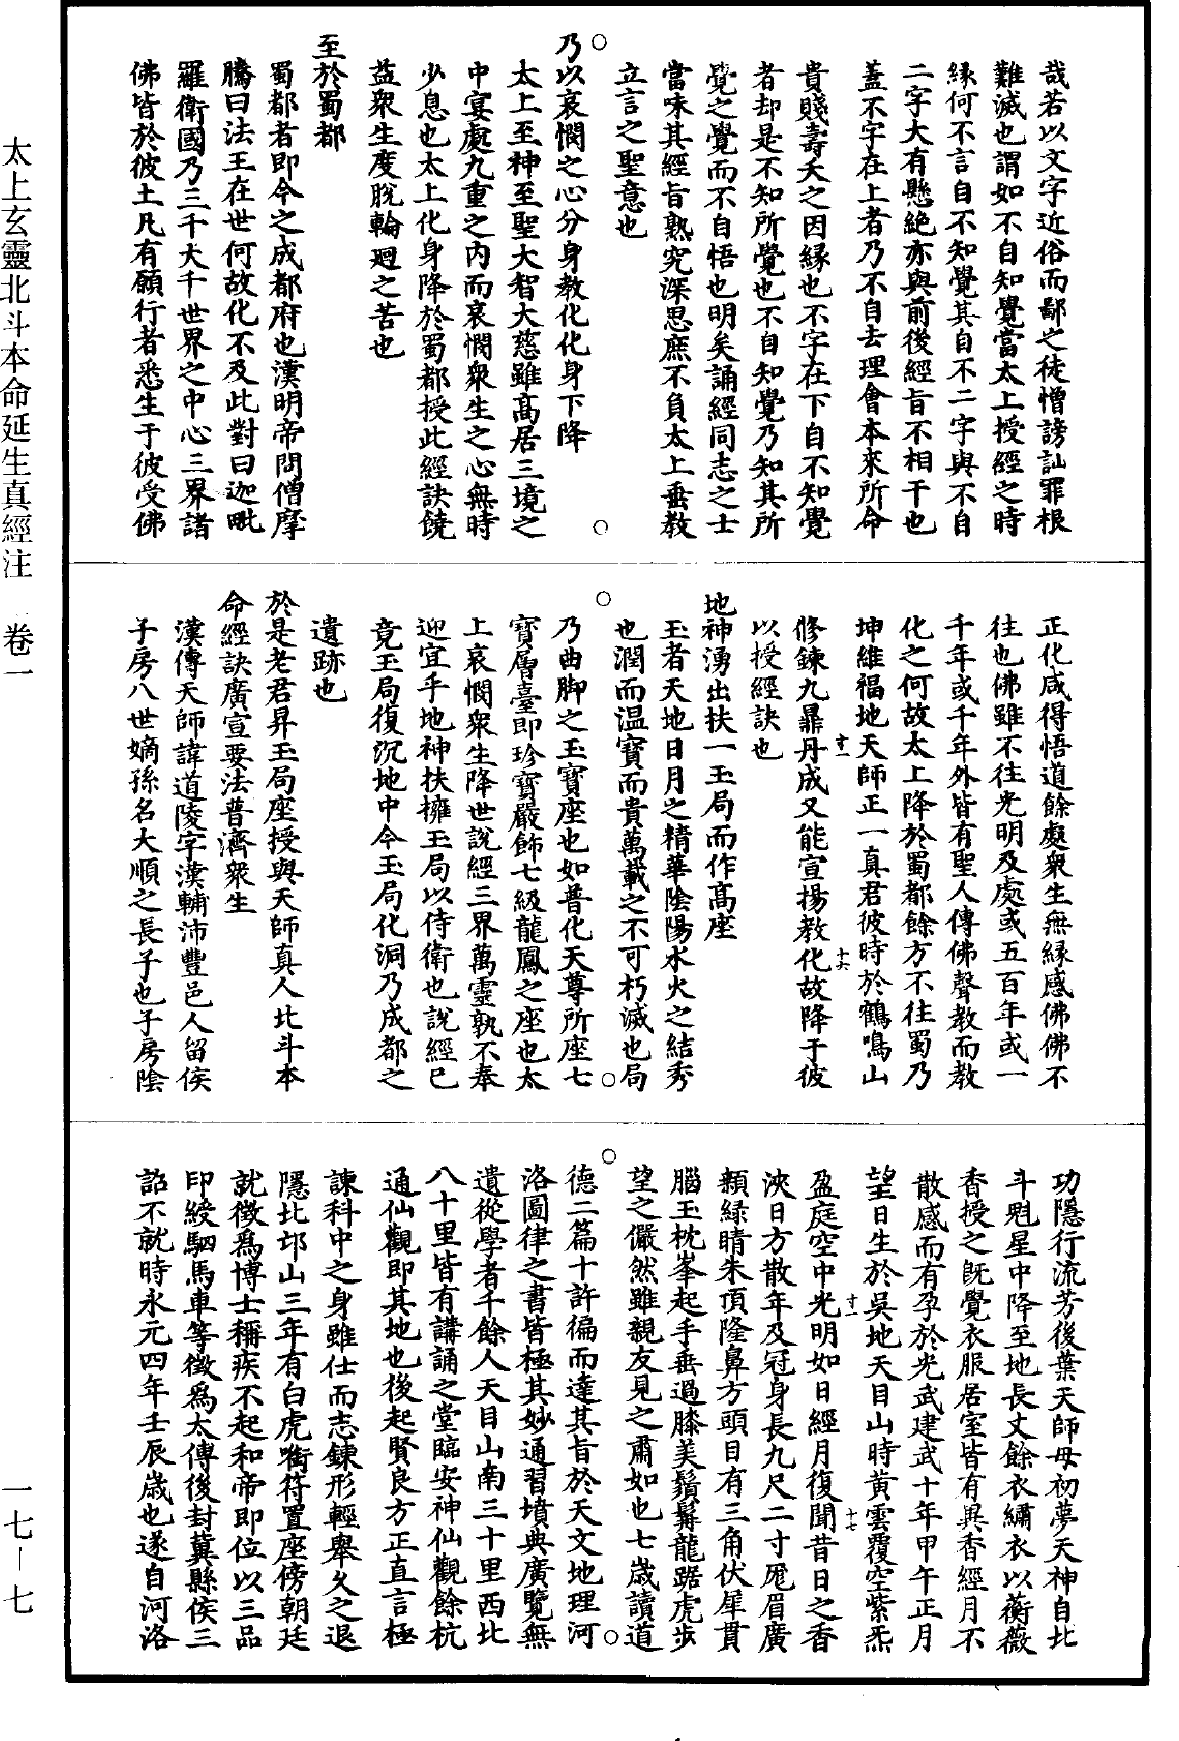 哉若以文字近俗而鄙之徒憎謗訕罪根
難滅也謂如不自知覺當太上授經之時
緣何不言自不知覺其自不二字與不自
二字大有懸絶亦與前後經旨不相干也
蓋不字在上者乃不自去理會本來所命
貴賤壽夭之因緣也不字在下自不知覺
者却是不知所覺也不自知覺乃知其所
覺之覺而不自悟也明矣誦經同志之士
當味其經旨熟究深思庶不負太上垂教
立言之聖意也
○
乃以哀憫之心分身教化化身下降
太上至神至聖大智大慈雖高居三境之
中宴處九重之内而哀憫衆生之心無時
少息也太上化身降於蜀都授此經訣饒
益衆生度脫輪迴之苦也
至於蜀都
蜀都者即今之成都府也漢明帝問僧摩
騰曰法王在世何故化不及此對曰迦毗
羅衛國乃三千大千世界之中心三界諸
佛皆於彼土凡有願行者悉生于彼受佛
正化咸得悟道餘處衆生無緣感佛佛不
往也佛雖不往光明及處或五百年或一
千年或千年外皆有聖人傳佛聲教而教
化之何故太上降於蜀都餘方不往蜀乃
坤維福地天師正一真君彼時於鶴鳴山
修鍊九鼎丹成又能宣揚教化故降于彼
以授經訣也
地神湧出扶一玉局而作高座
玉者天地日月之精華陰陽水火之結秀
也潤而温寶而貴萬載之不可朽滅也局
乃曲脚之玉寶座也如普化天尊所座七
寶層臺即珍寶嚴飾七級龍鳳之座也太
上哀憫衆生降世說經三界萬靈孰不奉
迎宜乎地神扶擁玉局以侍衛也說經已
竟玉局復沉地中今玉局化洞乃成都之
遺跡也
於是老君昇玉局座授與天師真人北斗本
命經訣廣宣要法普濟衆生
漢傳天師諱道陵字漢輔沛豐邑人留侯
子房八世嫡孫名大順之長子也子房陰
功隱行流芳後葉天師母初夢天神自北
斗魁星中降至地長丈餘衣繡衣以蘅薇
香授之既覺衣服居室皆有異香經月不
散感而有孕於光武建武十年甲午正月
望日生於吳地天目山時黄雲覆空紫炁
盈庭空中光明如日經月復聞昔日之香
浹日方散年及冠身長九尺二寸厖眉廣
顙緑睛朱頂隆鼻方頭目有三角伏犀貫
腦玉枕峯起手垂過膝美鬚髯龍踞虎步
望之儼然雖親友見之肅如也七歲讀道
德二篇十許徧而達其旨於天文地理河
洛圖律之書皆極其妙通習墳典廣覽無
遺從學者千餘人天目山南三十里西北
八十里皆有講誦之堂臨安神仙觀餘杭
通仙觀即其地也後起賢良方正直言極
諫科中之身雖仕而志鍊形輕舉久之退
隱北邙山三年有白虎啣符置座傍朝廷
就徵爲博士稱疾不起和帝即位以三品
印綬駟馬車等徵爲太傅後封冀縣侯三
詔不就時永元四年壬辰歲也遂自河洛
太上玄靈北斗本命延生真經注 卷一
一七—七